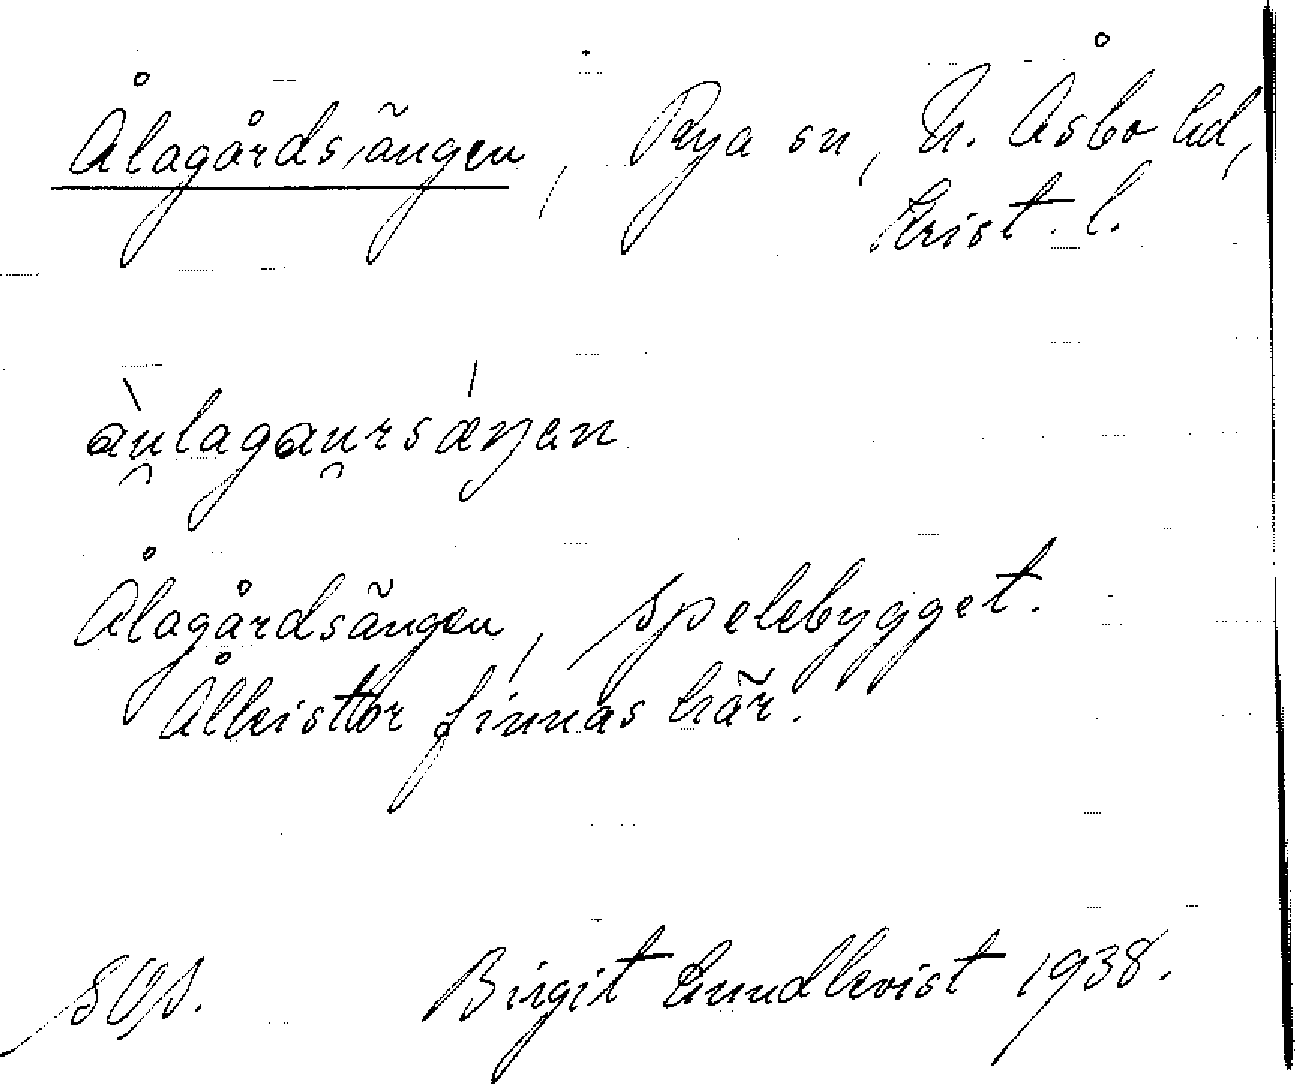 Ålagårdsängen, Rya sn, N. Åsbo hd,
Krist. l.
àu̯lagau̯rsæ̀ŋen
Ålagårdsängen, Spelebygget.
Ålkistor finnas här.
Birgit Lundkvist 1938.